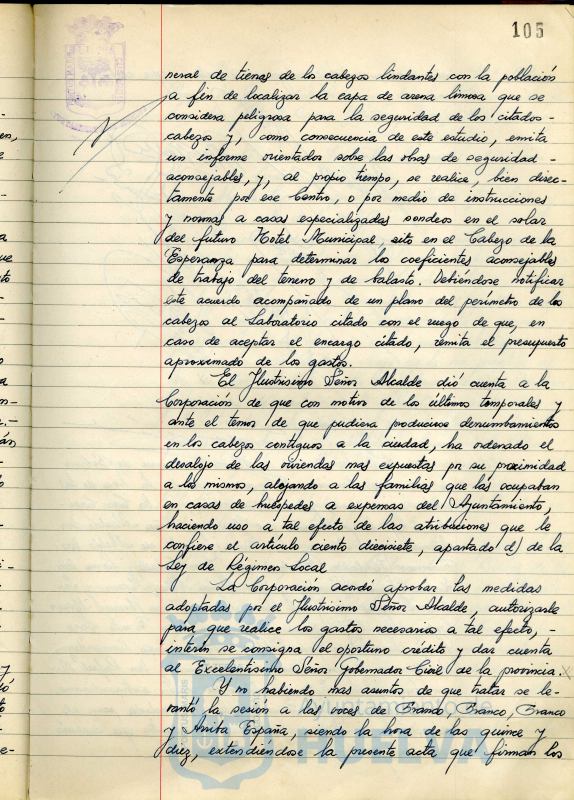 105
neral de tierras de los cabezos lindantes con la población
a fin de localizar la capa de arena limosa que se
considera peligrosa para la seguridad de los citados-
cabezos y, como consecuencia de este estudio, emita
un informe orientados sobre las obras de seguridad -
aconsejables, y, al propio tiempo, se realice, bien direc-
tamente por ese Centro, o por medio de instrucciones
y normas a casas especializadas sondeos en el solar
del futuro Hotel Municipal, sito en el Cabezo de la
Esperanza para determinar los coeficientes aconsejables
de trabajo del terreno y de balasto. Debiéndose notificar
este acuerdo acompañado de un plano del perímetro de los
cabezos al Laboratorio citado con el ruego de que, en
caso de aceptar el encargo citado, remita el presupuesto
aproximado de los gastos.
El Ilustrisimo Señor Alcalde dió cuenta a la
Corporación de que con motivo de los últimos temporales y
ante el temor de que pudiera producirse derrumbamientos
en los cabezos contiguos a la ciudad, ha ordenado el
desalojo de las viviendas mas expuestas por su proximidad
a los mismos, alojando a las familias que las ocupaban
en casas de huéspedes a expensas del Ayuntamiento,
haciendo uso a tal efecto de las atribuciones que le
confiere el artículo ciento diecisiete, apartado d) de la
Ley de Régimen Local
La Corporación acordó aprobar las medidas
adoptadas por el Ilustrisimo Señor Alcalde, autorizarle
para que realice los gastos necesarios a tal efecto, -
interin se consigna el oportuno crédito y dar cuenta
al Excelentisimo Señor Gobernador Civil de la provincia.
Y no habiendo mas asuntos de que tratar se le-
vantó la sesión a las voces de Franco, Franco, Franco
y Arriba España, siendo la hora de las quince y
diez, extendiéndose la presente acta que firman los